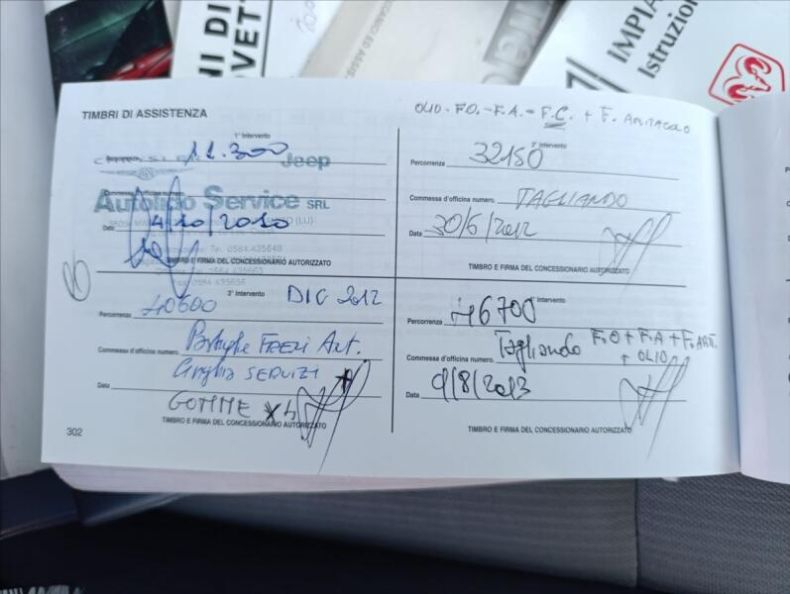 NI DI
OVETT
IMPIA
Istruzio
TIMBRI DI ASSISTENZA
OLIO - F.O. - F.A. - F.C. + F. ANTIPOLLO
1° Intervento
11.300
Jeep
Autolido Service SRL
Data 4/10/2010
TIMBRO E FIRMA DEL CONCESSIONARIO AUTORIZZATO
Intervento
Percorrenza 32150
Commessa d'officina numero TAGLIANDO
Data 30/6/2012
TIMBRO E FIRMA DEL CONCESSIONARIO AUTORIZZATO
2° Intervento DIC 2012
Percorrenza 40600
Commessa d'officina numero Pastiglie FRENI Ant.
Data Cinghia SERVIZI +
GOMME x4
TIMBRO E FIRMA DEL CONCESSIONARIO AUTORIZZATO
Intervento
Percorrenza 46700
Commessa d'officina numero Tagliando F.O + F.A + F. ABIT.
+ OLIO
Data 9/8/2013
TIMBRO E FIRMA DEL CONCESSIONARIO AUTORIZZATO
302